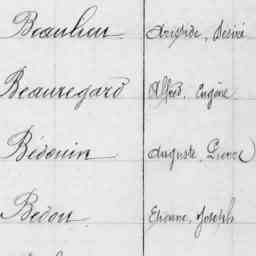 Beaulieu Aristide, Désiré
Beauregard Alfred, Eugène
Bédouin Auguste, Pierre
Bedou Etienne, Joseph